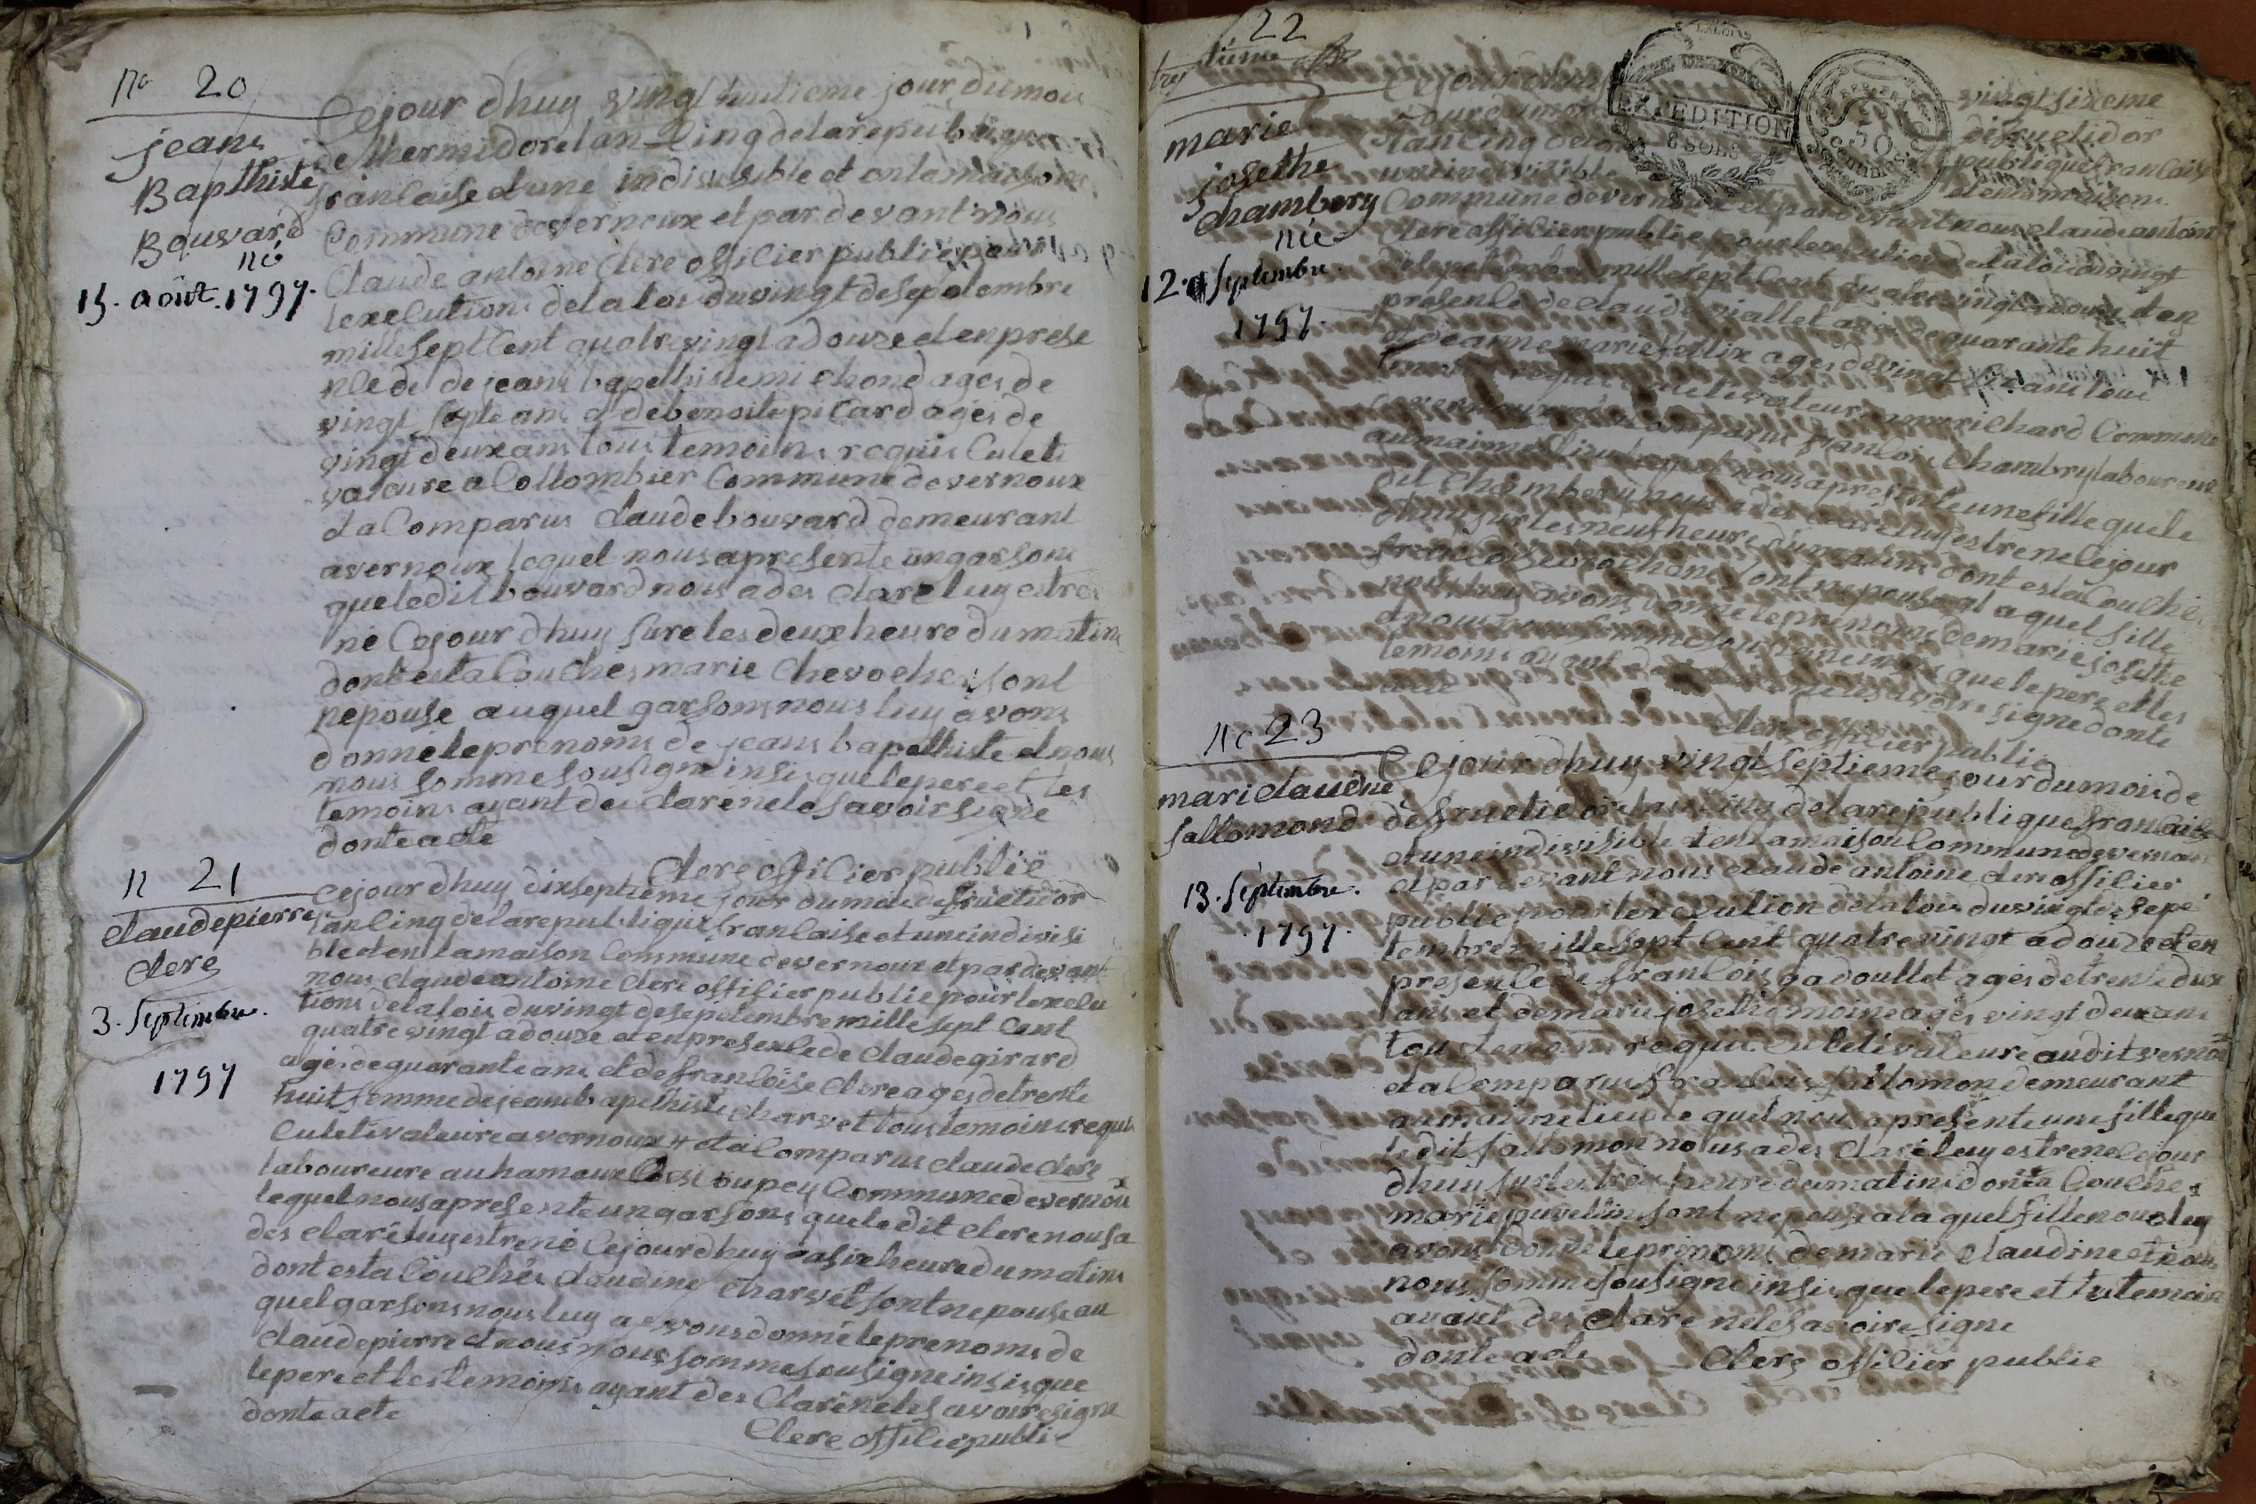 no 20
jean
Bapthiste
Bouvard
né
15. août. 1797.
Cejour dhuy vingt huitieme jour du moi
de thermidore lan Cinq delarepublique
franlaise et une indivisible et enlamaison
Commune devernoux et par devant nous
Claude antoine Clere offilier publie pour
lexelution delaloi duvingt desepetembre
mille sept Cent quatre vingt adouze et enprese
nle de de jean bapethiste michond ages de
vingt septe ans et debenoite picard ages de
vingt deux ans tous temoins requis Culeti
valeure a Collombier Commune devernoux
et a Comparus Claude bouvard demeurant
avernoux lequel nous apresente un garson
queledit bouvard nous a des Clare luy estre
né Cejour dhuy sure les deux heure du matin
donte esta Couches marie Chevoche sont
nepouse auquel garsons nous luy avons
donné le prenoms de jean bapethiste et nous
nous somme sousigne insi que lepere et les
temoins ayant des Clare nele savoir signe
donte acte
Clere offilier publie
n 21
Claude pierre
Clere
3. Septembre.
1797
Cejour dhuy dixseptieme jour du mois de fructidor
lan Cinq delarepublique franlaise et une indivisi
ble et en lamaison Commune devernoux et par devant
nous Claude antoine Clere offilier publie pour lexelu
tions delalois duvingt desepetembre mille sept Cent
quatre vingt adouze et enpresenle de Claude girard
ages de quarante ans et de franloise Clere ages de trente
huit femme de jean bapethiste Charvet tous temoins requis
Culetivaleure avernoux et a Comparus Claude Clere
laboureure au hamoux Commune devernoux
lequel nous apresente un garsons que le dit Clere nous a
des Claré luy estre né Cejour dhuy sixheure du matin
dont esta Couches Claudine Charvet sont nepouse au
quel garsons nous luy avons donné le prenoms de
Claude pierre et nous nous somme sousigne insi que
lepere et les temoins ayant des Clare neles avoire signe
donte acte
Clere offilier publie
22
marie
josethe
Chambery
née
12. Septembre.
1797.
Cejour dhuy vingt sixeme
jour du mois de fructidor
lan Cinq delarepublique franlaise
une indivisible et enlamaison
Commune devernoux et par devant nous Claude antoine
Clere offilier publie pour lexelution delaloi du vingt
desepetembre mille sept Cent quatre vingt adouze et en
presenle de Claude ages de quarante huit
et jeanne marie ages de vingt ans tous
temoins requis Culetivaleure Commune
et a Comparus franlois Chambry laboureur
au maime lieu lequel nous apresente une fille que le
dit Chambery nous a des Claré luy estre ne le jour
dhuy sur les neuf heure du matins dont esta Couches
sont nepouse a laquel fille
nous luy avons donne le prenoms de marie josethe
et nous nous somme sousigne insi que lepere et les
temoins ayant des Clare neles avoire signe donte
acte
Clere offilier publie
no 23
mari Claudine
Sallomond
13. Septembre.
1797.
Cejour dhuy vingt septieme jour du mois de
de fructidor lan Cinq delarepublique franlaise
et une indivisible et en lamaison Commune devernoux
et par devant nous Claude antoine Clere offilier
publie pour lexelution delalois duvingt de sepe
tembre mille sept Cent quatre vingt adouze et en
presenle de franlois gadoullet ages de trente deux
ans et de marie josethe moine ages vingt deux ans
tous temoins requis Culetivaleure audit verno
et a Comparus franlois sallomon demeurant
au maime lieu le quel nous apresente une fille que
ledit sallomon nous a des Claré luy estre ne le jour
dhuy sur les trois heure du matins dont esta Couches
marie sont nepouse a la quel fille nous luy
avons donne le prenoms de marie Claudine et nous
nous somme sousigne insi que lepere et les temoin
ayant des Clare neles avoire signe
donte acte
Clere offilier publie